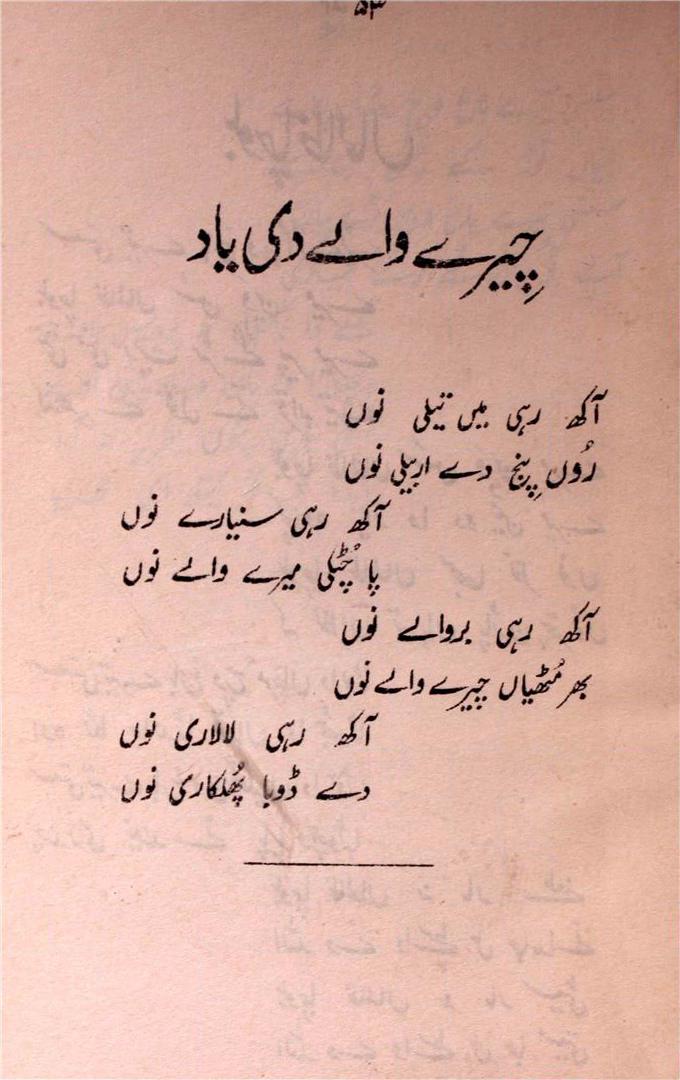 ۵۳
چِیرے والے دی یاد
آکھ رہی میں تیلی نوں
رُوں پِنج دے اربیلی نوں
آکھ رہی سنیارے نوں
پا چُٹکی میرے والے نوں
آکھ رہی بروالے نوں
بھر مُٹھیاں چیرے والے نوں
آکھ رہی لالاری نوں
دے ڈوبا پھُلکاری نوں